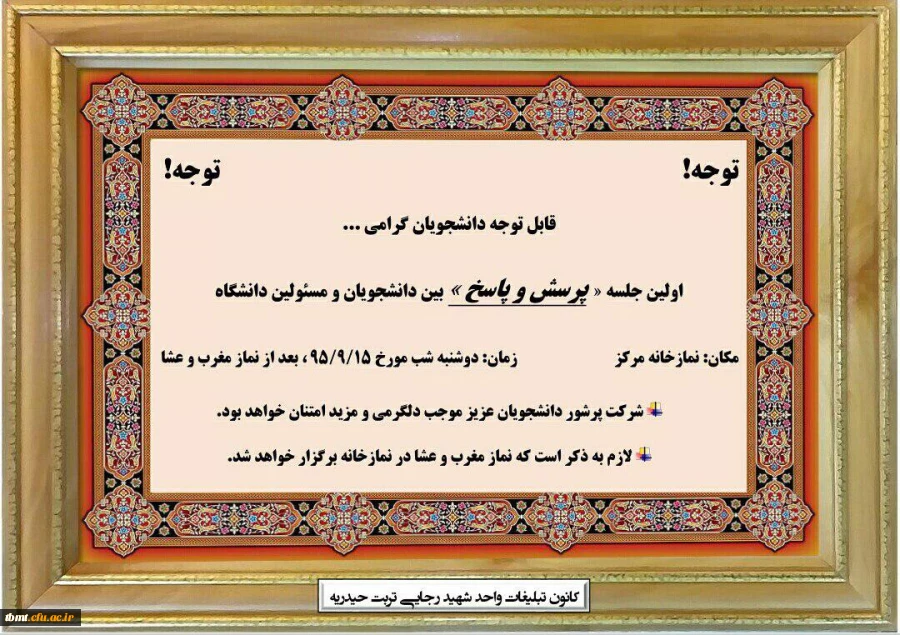 توجه! توجه!
قابل توجه دانشجویان گرامی ...
اولین جلسه « پرسش و پاسخ » بین دانشجویان و مسئولین دانشگاه
مکان: نمازخانه مرکز زمان: دوشنبه شب مورخ ۹۵/۹/۱۵ ، بعد از نماز مغرب و عشا
شرکت پرشور دانشجویان عزیز موجب دلگرمی و مزید امتنان خواهد بود.
لازم به ذکر است که نماز مغرب و عشا در نمازخانه برگزار خواهد شد.
کانون تبلیغات واحد شهید رجایی تربت حیدریه
tbmt.cfu.ac.ir